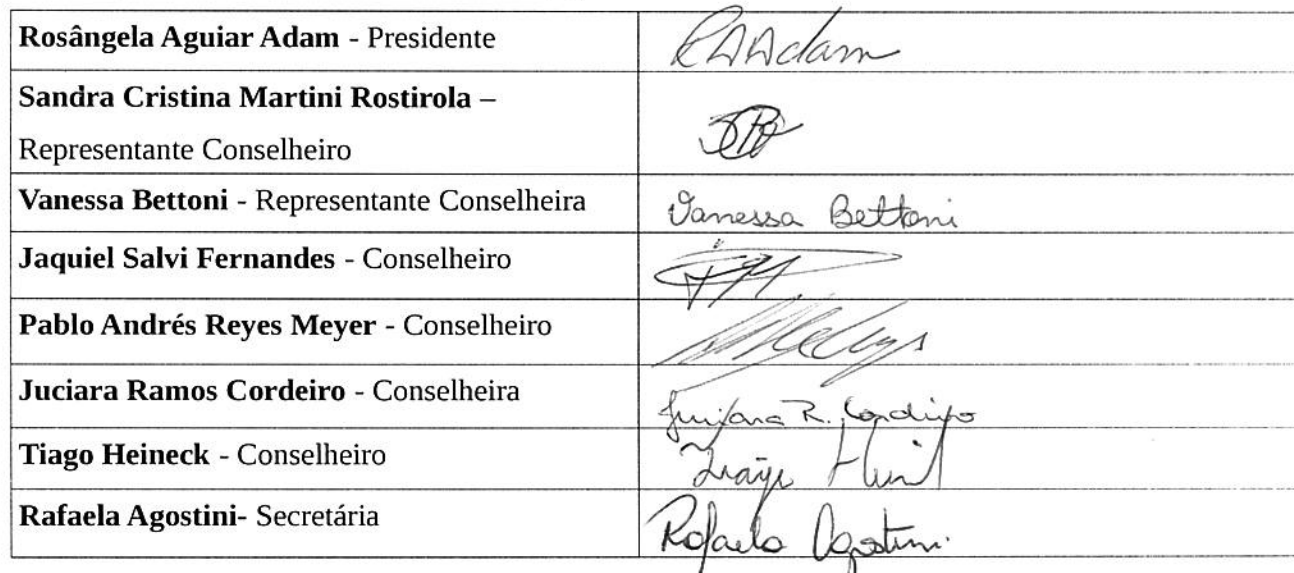 Rosângela Aguiar Adam - Presidente RAAdam
Sandra Cristina Martini Rostirola –
Representante Conselheiro
Vanessa Bettoni - Representante Conselheira Vanessa Bettoni
Jaquiel Salvi Fernandes - Conselheiro
Pablo Andrés Reyes Meyer - Conselheiro
Juciara Ramos Cordeiro - Conselheira Juciara R. Cordeiro
Tiago Heineck - Conselheiro Tiago
Rafaela Agostini- Secretária Rafaela Agostini